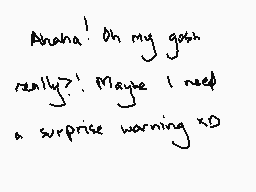 Ahaha! Oh my gosh
really?! Maybe I need
a surprise warning xD